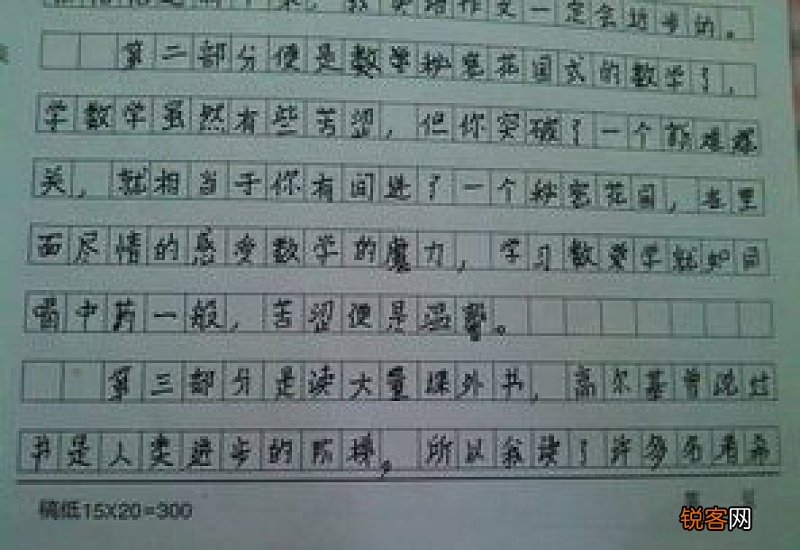 作文一定会进步的。
第二部分便是数学秘密花园式的数学了,
学数学虽然有些苦涩,但你突破了一个难
关,就相当于你有间进了一个秘密花园,在里
面尽情的感受数学的魔力,学习数学就如同
喝中药一般,苦涩便是温馨。
第三部分是读大量课外书,高尔基曾说过
书是人类进步的阶梯。所以我读了许多
稿纸15X20=300
锐客网